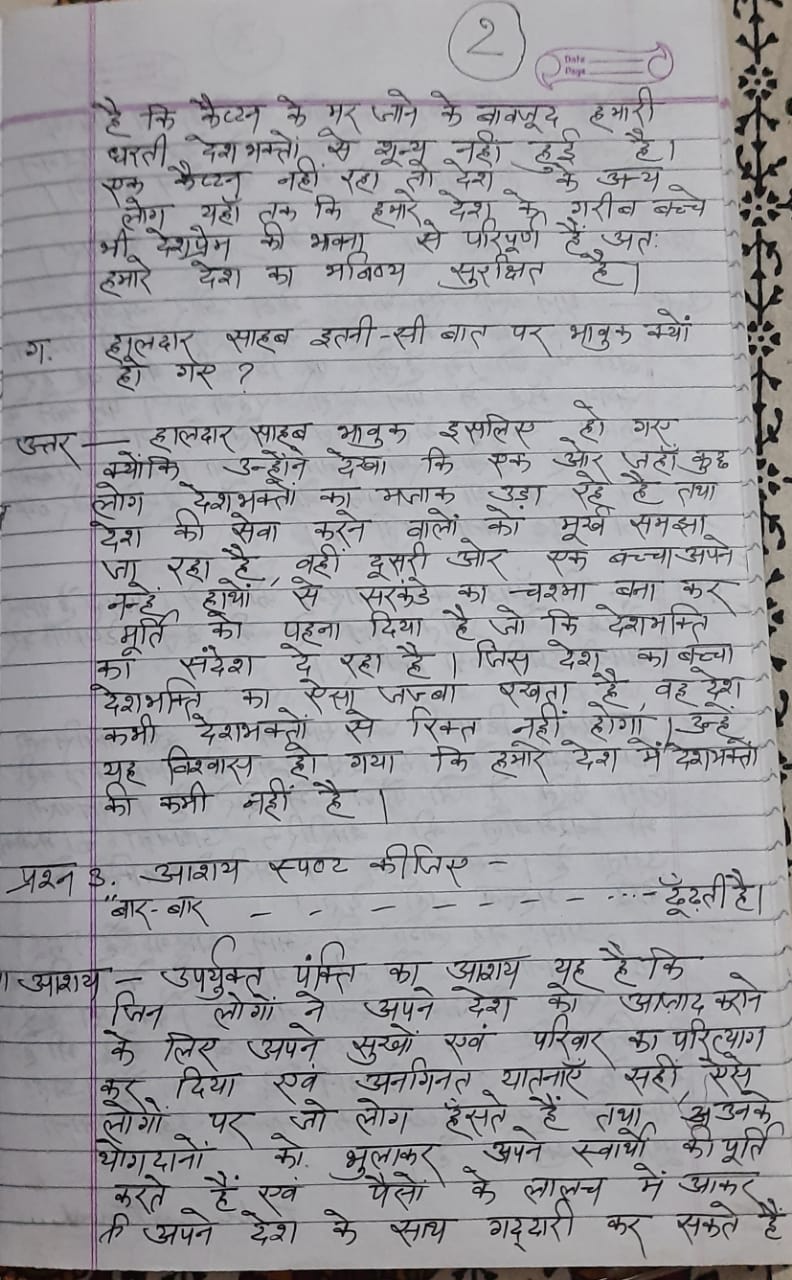 2
Date
Page
है कि कैप्टन के मर जाने के बावजूद हमारी
धरती देशभक्तों से शून्य नहीं हुई है।
एक कैप्टन नहीं रहा तो देश के अन्य
लोग यहाँ तक कि हमारे देश के गरीब बच्चे
भी देशप्रेम की भक्ता से परिपूर्ण हैं अतः
हमारे देश का भविष्य सुरक्षित है।
ग. हालदार साहब इतनी-सी बात पर भावुक क्यों
हो गए ?
उत्तर — हालदार साहब भावुक इसलिए हो गए
क्योंकि उन्होंने देखा कि एक ओर जहाँ कुछ
लोग देशभक्तों का मजाक उड़ा रहे है तथा
देश की सेवा करने वालों को मूर्ख समझा
जा रहा है, वहीं दूसरी ओर एक बच्चा अपने
नन्हें हाथों से सरकंडे का चश्मा बना कर
मूर्ति को पहना दिया है जो कि देशभक्ति
का संदेश दे रहा है। जिस देश का बच्चा
देशभक्ति का ऐसा जज्बा रखता है, वह देश
कभी देशभक्तों से रिक्त नहीं होगा। उन्हें
यह विश्वास हो गया कि हमारे देश में देशभक्तों
की कमी नहीं है।
प्रश्न 3. आशय स्पष्ट कीजिए -
"बार-बार - - - - - - - - ...- ढूँढ़ती है।
आशय - उपर्युक्त पंक्ति का आशय यह है कि
जिन लोगों ने अपने देश को आज़ाद कराने
के लिए अपने सुखों एवं परिवार का परित्याग
कर दिया एवं अनगिनत यातनाएँ सहीं, ऐसे
लोगों पर जो लोग हँसते हैं तथा उनके
योगदानों को भुलाकर अपने स्वार्थों की पूर्ति
करते हैं एवं पैसों के लालच में आकर
अपने देश के साथ गद्दारी कर सकते हैं